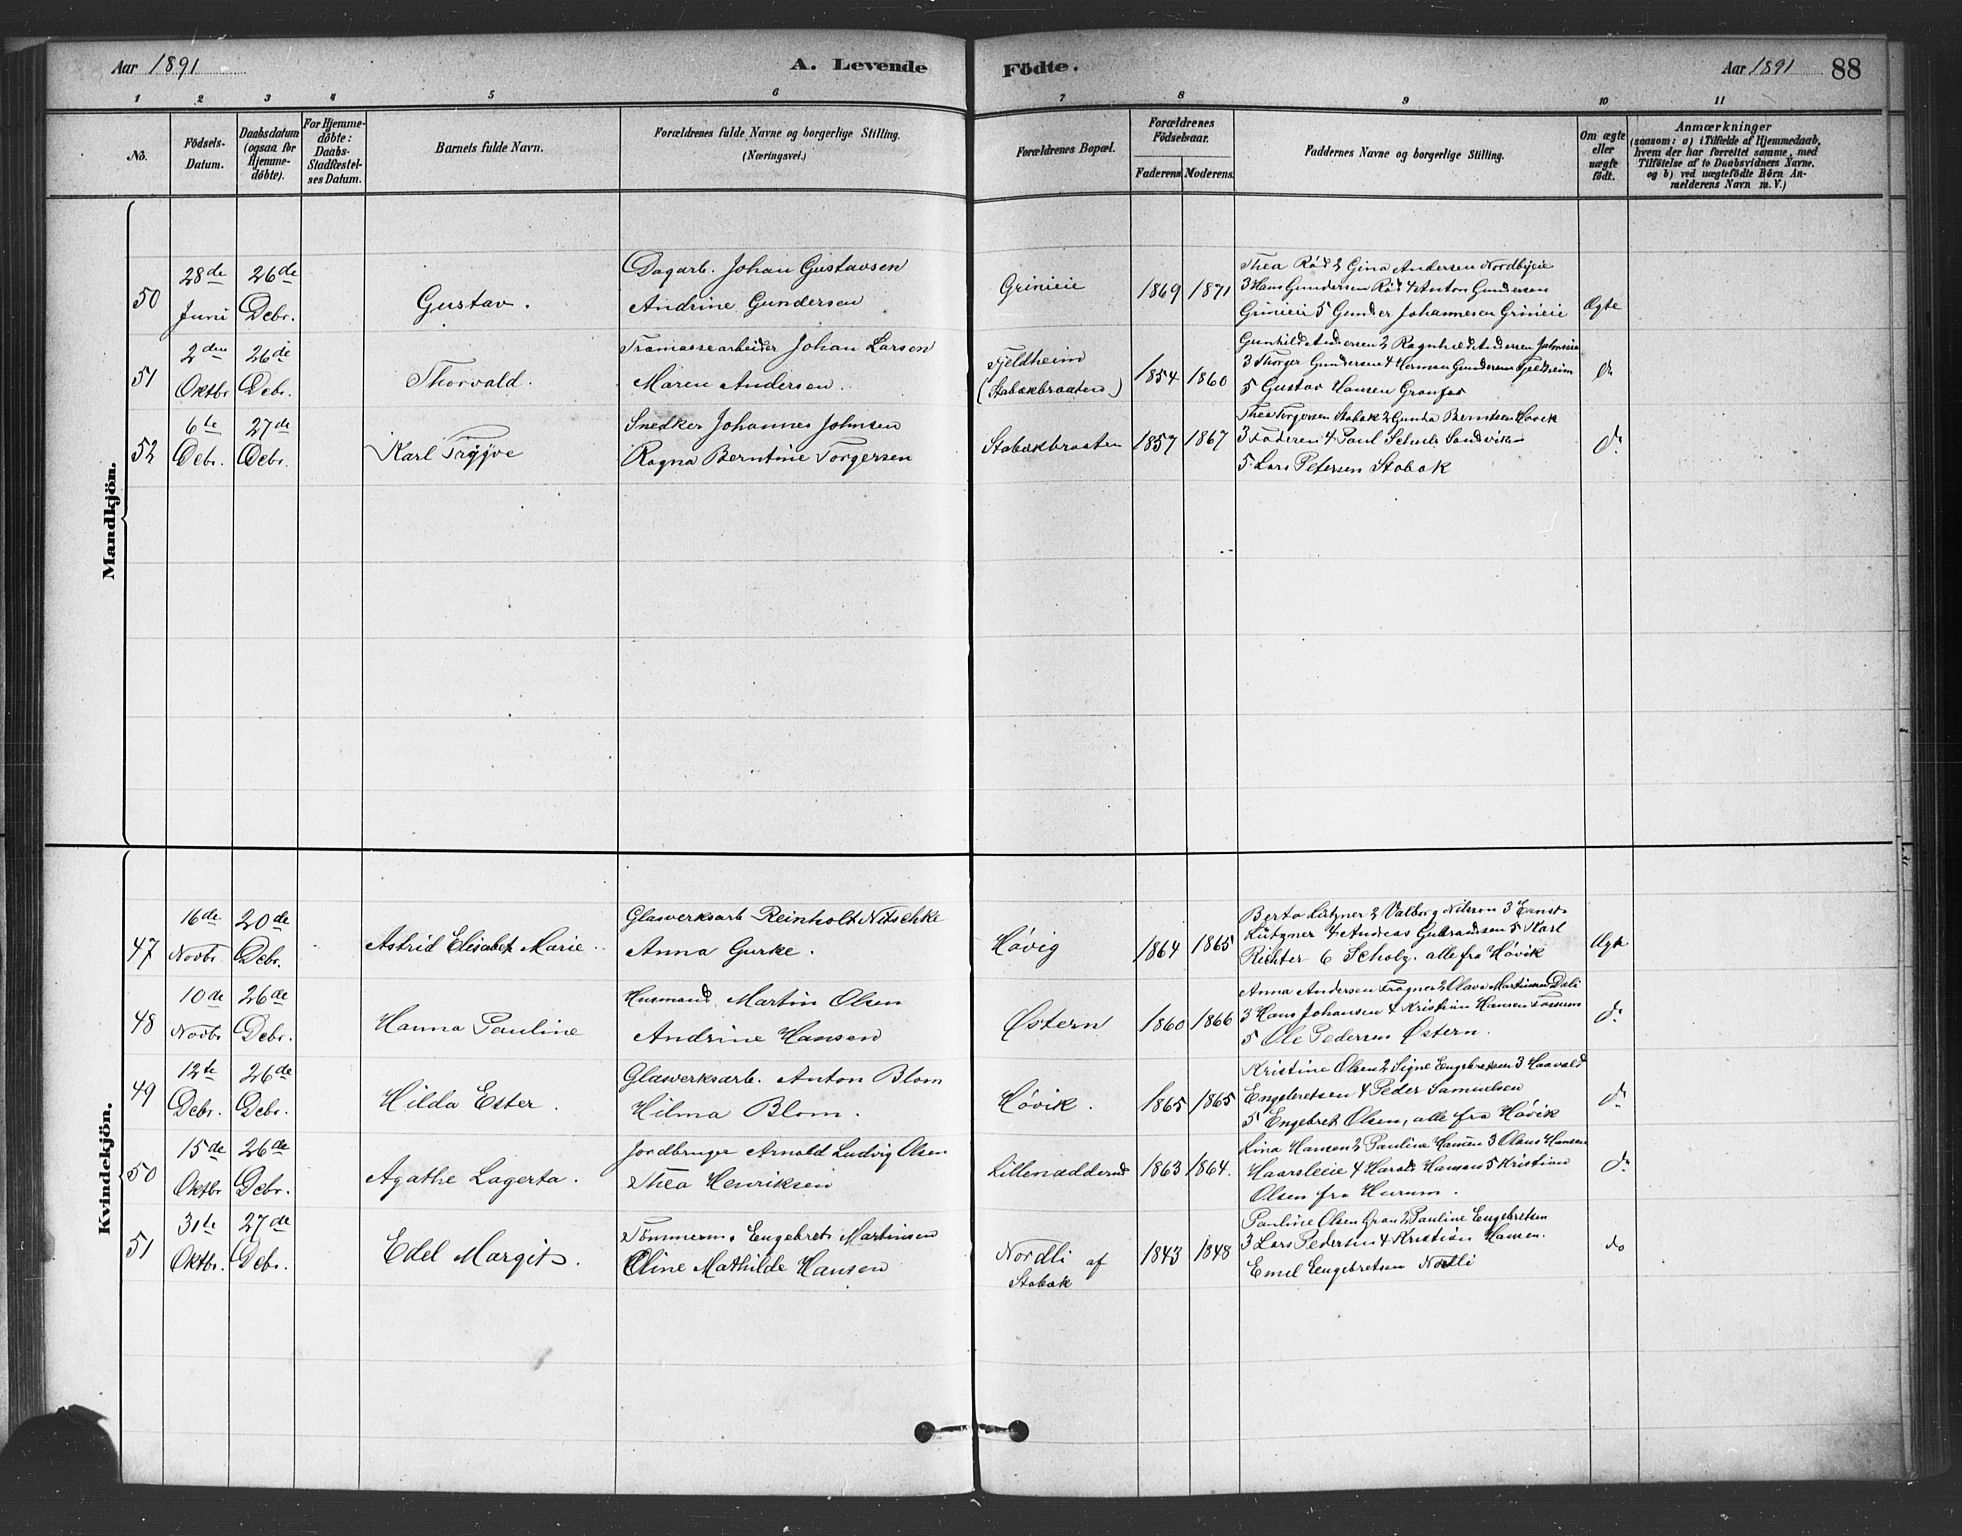 Aar 1891 A. Levende Födte. Aar 1891 88
1 2 3 4 5 6 7 8 9 10 11
No.
Födsels-Datum.
Daabsdatum (ogsaa for Hjemme-döbte).
For Hjemme-döbte: Daabs-Stadfæstel-ses Datum.
Barnets fulde Navn.
Forældrenes fulde Navne og borgerlige Stilling. (Næringsvei.)
Forældrenes Bopæl.
Forældrenes Födselsaar.
Faderens Moderens.
Faddernes Navne og borgerlige Stilling.
Om ægte eller uægte födt.
Anmærkninger
(saasom: a) i Tilfælde af Hjemmedaab,
hvem der har forrettet samme, med
Tilföielse af to Daabsvidners Navne.
og b) ved uægtefödte Börn An-
melderens Navn m. V.)
Mandkjön.
50
28de Juni
26de Debr.
Gustav.
Dagarb. Johan Gustavsen
Andrine Gundersen
Grinieie
1869 1871
Thea Rød 2 Gina Andersen Nordbyeie
3 Hans Gundersen Rød 4 Anton Gundersen
Grinieie 5 Gunder Johannesen Grinieie
Ægte
51
2den Oktbr
26de Debr.
Thorvald.
Tramassearbeider Johan Larsen
Maren Andersen.
Fjeldheim
(Stabækbraaten)
1854 1860
Gunhild Andersen 2 Ragnhild Andersen
3 Thorger Gundersen 4 Herman Gundersen Fjeldheim
5 Gustav Hansen Granfos
do
52
6te Debr.
27de Debr.
Karl Trygve
Snedker Johannes Johnsen
Ragna Berntine Torgersen
Stabækbraaten
1857 1867
Thea Torgersen Stabæk 2 Gunda Berntsen Høvik
3 Faderen 4 Paul Schulz Sandviken
5 Lars Petersen Stabæk
do
Kvindekjön.
47
16de Novbr
20de Debr.
Astrid Elisabet Marie.
Glasverksarb Reinholt Nitschke
Anna Gurke.
Høvig
1864 1865
Berta Lützner 2 Valborg Nilsson 3 Ernst
Lützner 4 Andreas Gulbrandsen 5 Karl
Richter 6 Scholz. alle fra Høvik
Ægte
48
10de Novbr
26de Debr.
Hanna Pauline
Husmand Martin Olsen
Andrine Hansen
Østern
1860 1866
Anna Andersen Frogner 2 Olava Martinsen Dali
3 Hans Johansen 4 Kristian Hansen Fossum
5 Ole Pedersen Østern.
do
49
12te Debr.
26de Debr.
Hilda Ester.
Glasverksarb. Anton Blom
Hilma Blom.
Høvik.
1865 1865
Kristine Olsen 2 Signe Engebretsen 3 Haavald
Engebretsen 4 Peder Samuelsen
5 Engebret Olsen, alle fra Høvik
do
50
15de Oktbr
26de Debr.
Agathe Lagerta.
Jordbruger Arnold Ludvig Olsen
Thea Henriksen
Lillenadderud
1863 1864.
Lina Hansen 2 Pauline Hansen 3 Olaus Hansen
Haarsleie 4 Harald Hansen 5 Kristian
Olsen fra Hurum.
do
51
31te Oktbr.
27de Debr.
Edel Margit.
Tømmerm. Engebret Martinsen
Oline Mathilde Hansen
Nordli af
Stabæk
1843 1848
Pauline Olsen Gran 2 Pauline Engebretsen
3 Lars Pedersen 4 Kristian Hansen.
Emil Engebretsen Nordli
do